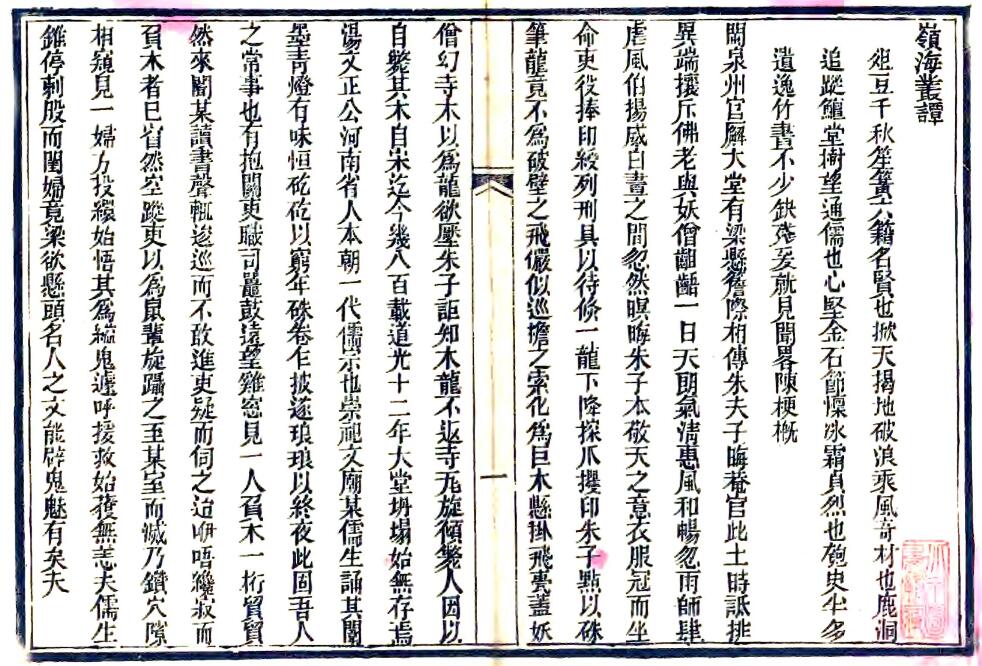 嶺海叢譚
俎豆千秋笙簧六籍名賢也掀天揭地破浪乘風奇材也鹿洞
追蹤鱣堂樹望通儒也心堅金石節懍冰霜貞烈也稗史中多
遺逸竹書不少缺殘爰就見聞畧陳梗概
閩泉州官廨大堂有梁懸簷際相傳朱夫子晦菴官此土時詆排
異端攘斥佛老與妖僧齟齬一日天朗氣清惠風和暢忽雨師肆
虐風伯揚威白晝之間忽然暝晦朱子本敬天之意衣服冠而坐
命吏役捧印綬列刑具以待倏一龍下降探爪攫印朱子點以硃
筆龍竟不為破壁之飛儼似巡檐之索化為巨木懸掛飛甍蓋妖
僧幻寺木以為龍欲壓朱子詎知木龍不返寺兀旋傾斃人因以
自斃其木自宋迄今幾八百載道光十二年大堂坍塌始無存焉
湯文正公河南省人本朝一代儒宗也崇祀文廟某儒生誦其闈
墨青燈有味恒矻矻以窮年硃卷乍披遂琅琅以終夜此固吾人
之常事也有抱關吏職司鼉鼓遠望雞窓見一人負木一桁貿貿
然來聞某讀書聲輒逡巡而不敢進吏疑而伺之迨咿唔纔寂而
負木者已窅然空蹤吏以為鼠輩旋躡之至某室而滅乃鑽穴隙
相窺見一婦方投繯始悟其為縊鬼遽呼援救始獲無恙夫儒生
錐停刺股而閨婦竟梁欲懸頭名人之文能辟鬼魅有矣夫
一